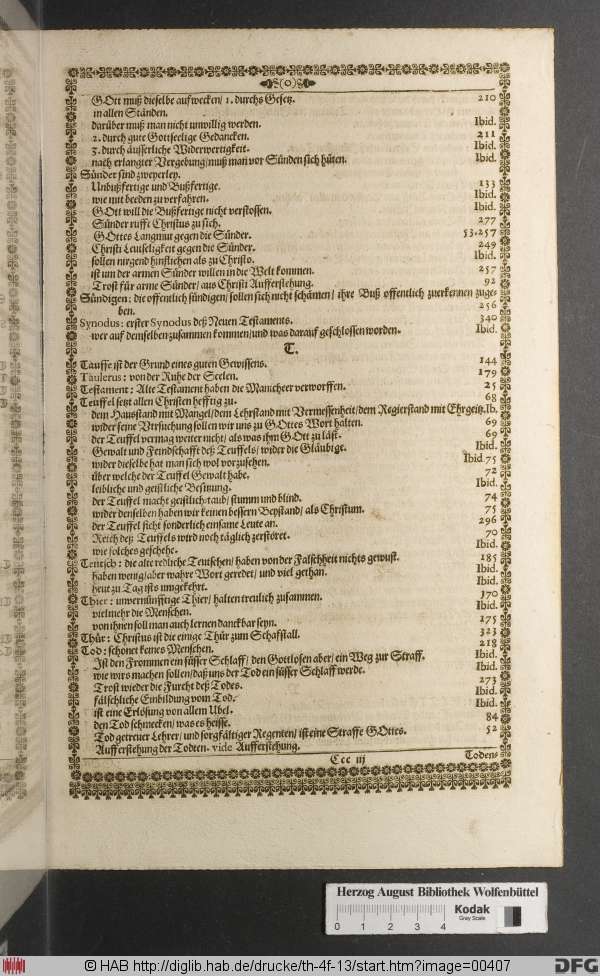 (o)
GOtt muß dieselbe aufwecken/ 1. durchs Gesetz. 210
in allen Ständen.
darüber muß man nicht unwillig werden. Ibid.
2. durch gute Gottseelige Gedancken. 211
3. durch äusserliche Widerwertigkeit. Ibid.
nach erlangter Vergebung/ muß man vor Sünden sich hüten. Ibid.
Sünder sind zweyerley.
Unbußfertige und Bußfertige. 133
wie mit beeden zu verfahren. Ibid.
GOtt will die Bußfertige nicht verstossen. Ibid.
Sünder rufft Christus zu sich. 277
GOttes Langmut gegen die Sünder. 53.257
Christi Leutseligkeit gegen die Sünder. 249
sollen nirgend hinfliehen als zu Christo. Ibid.
ist um der armen Sünder willen in die Welt kommen. 257
Trost für arme Sünder/ aus Christi Aufferstehung. 92
Sündigen: die offentlich sündigen/ sollen sich nicht schämen/ ihre Buß offentlich zuerkennen zuge-
ben. 256
Synodus: erster Synodus deß Neuen Testaments. 340
wer auf demselben zusammen kommen/ und was darauf geschlossen worden. Ibid.
T.
Tauffe ist der Grund eines guten Gewissens. 144
Taulerus: von der Ruhe der Seelen. 179
Testament: Alte Testament haben die Manicheer verworffen. 25
Teuffel setzt allen Christen hefftig zu. 68
dem Hausstand mit Mangel/ dem Lehrstand mit Vermessenheit/ dem Regierstand mit Ehrgeitz. Ib.
wider seine Versuchung sollen wir uns zu GOttes Wort halten. 69
der Teuffel vermag weiter nicht/ als was ihm GOtt zu läst. 69
Gewalt und Feindschafft deß Teuffels/ wider die Gläubige. Ibid.
wider dieselbe hat man sich wol vorzusehen. Ibid 75
über welche der Teuffel Gewalt habe. 72
leibliche und geistliche Besitzung. Ibid.
der Teuffel macht geistlich taub/ stumm und blind. 74
wider denselben haben wir keinen bessern Beystand/ als Christum. 75
der Teuffel ficht sonderlich einsame Leute an. 296
Reich deß Teuffels wird noch täglich zerstöret. 70
wie solches geschehe. Ibid.
Teutsch: die alte redliche Teutschen/ haben von der Falschheit nichts gewust. 185
haben wenig/ aber wahre Wort geredet/ und viel gethan. Ibid.
heut zu Tag ists umgekehrt. Ibid.
Thier: unvernünfftige Thier/ halten treulich zusammen. 370
vielmehr die Menschen. Ibid.
von ihnen soll man auch lernen danckbar seyn. 175
Thür: Christus ist die einige Thür zum Schafstall. 323
Tod: schonet keines Menschen. 218
Ist den Frommen ein süsser Schlaff/ den Gottlosen aber/ ein Weg zur Straff. Ibid.
wie wirs machen sollen/ daß uns der Tod ein süsser Schlaff werde. Ibid.
Trost wieder die Furcht deß Todes. 273
fälschliche Einbildung vom Tod. Ibid.
ist eine Erlösung von allem Ubel. Ibid.
den Tod schmecken/ was es heisse. 84
Tod getreuer Lehrer/ und sorgfältiger Regenten/ ist eine Straffe GOttes. 52
Aufferstehung der Todten. vide Aufferstehung.
Ccc iij Todens
Herzog August Bibliothek Wolfenbüttel
0 1 2 3 4 Kodak
Gray Scale
© HAB http://diglib.hab.de/drucke/th-4f-13/start.htm?image=00407
DFG